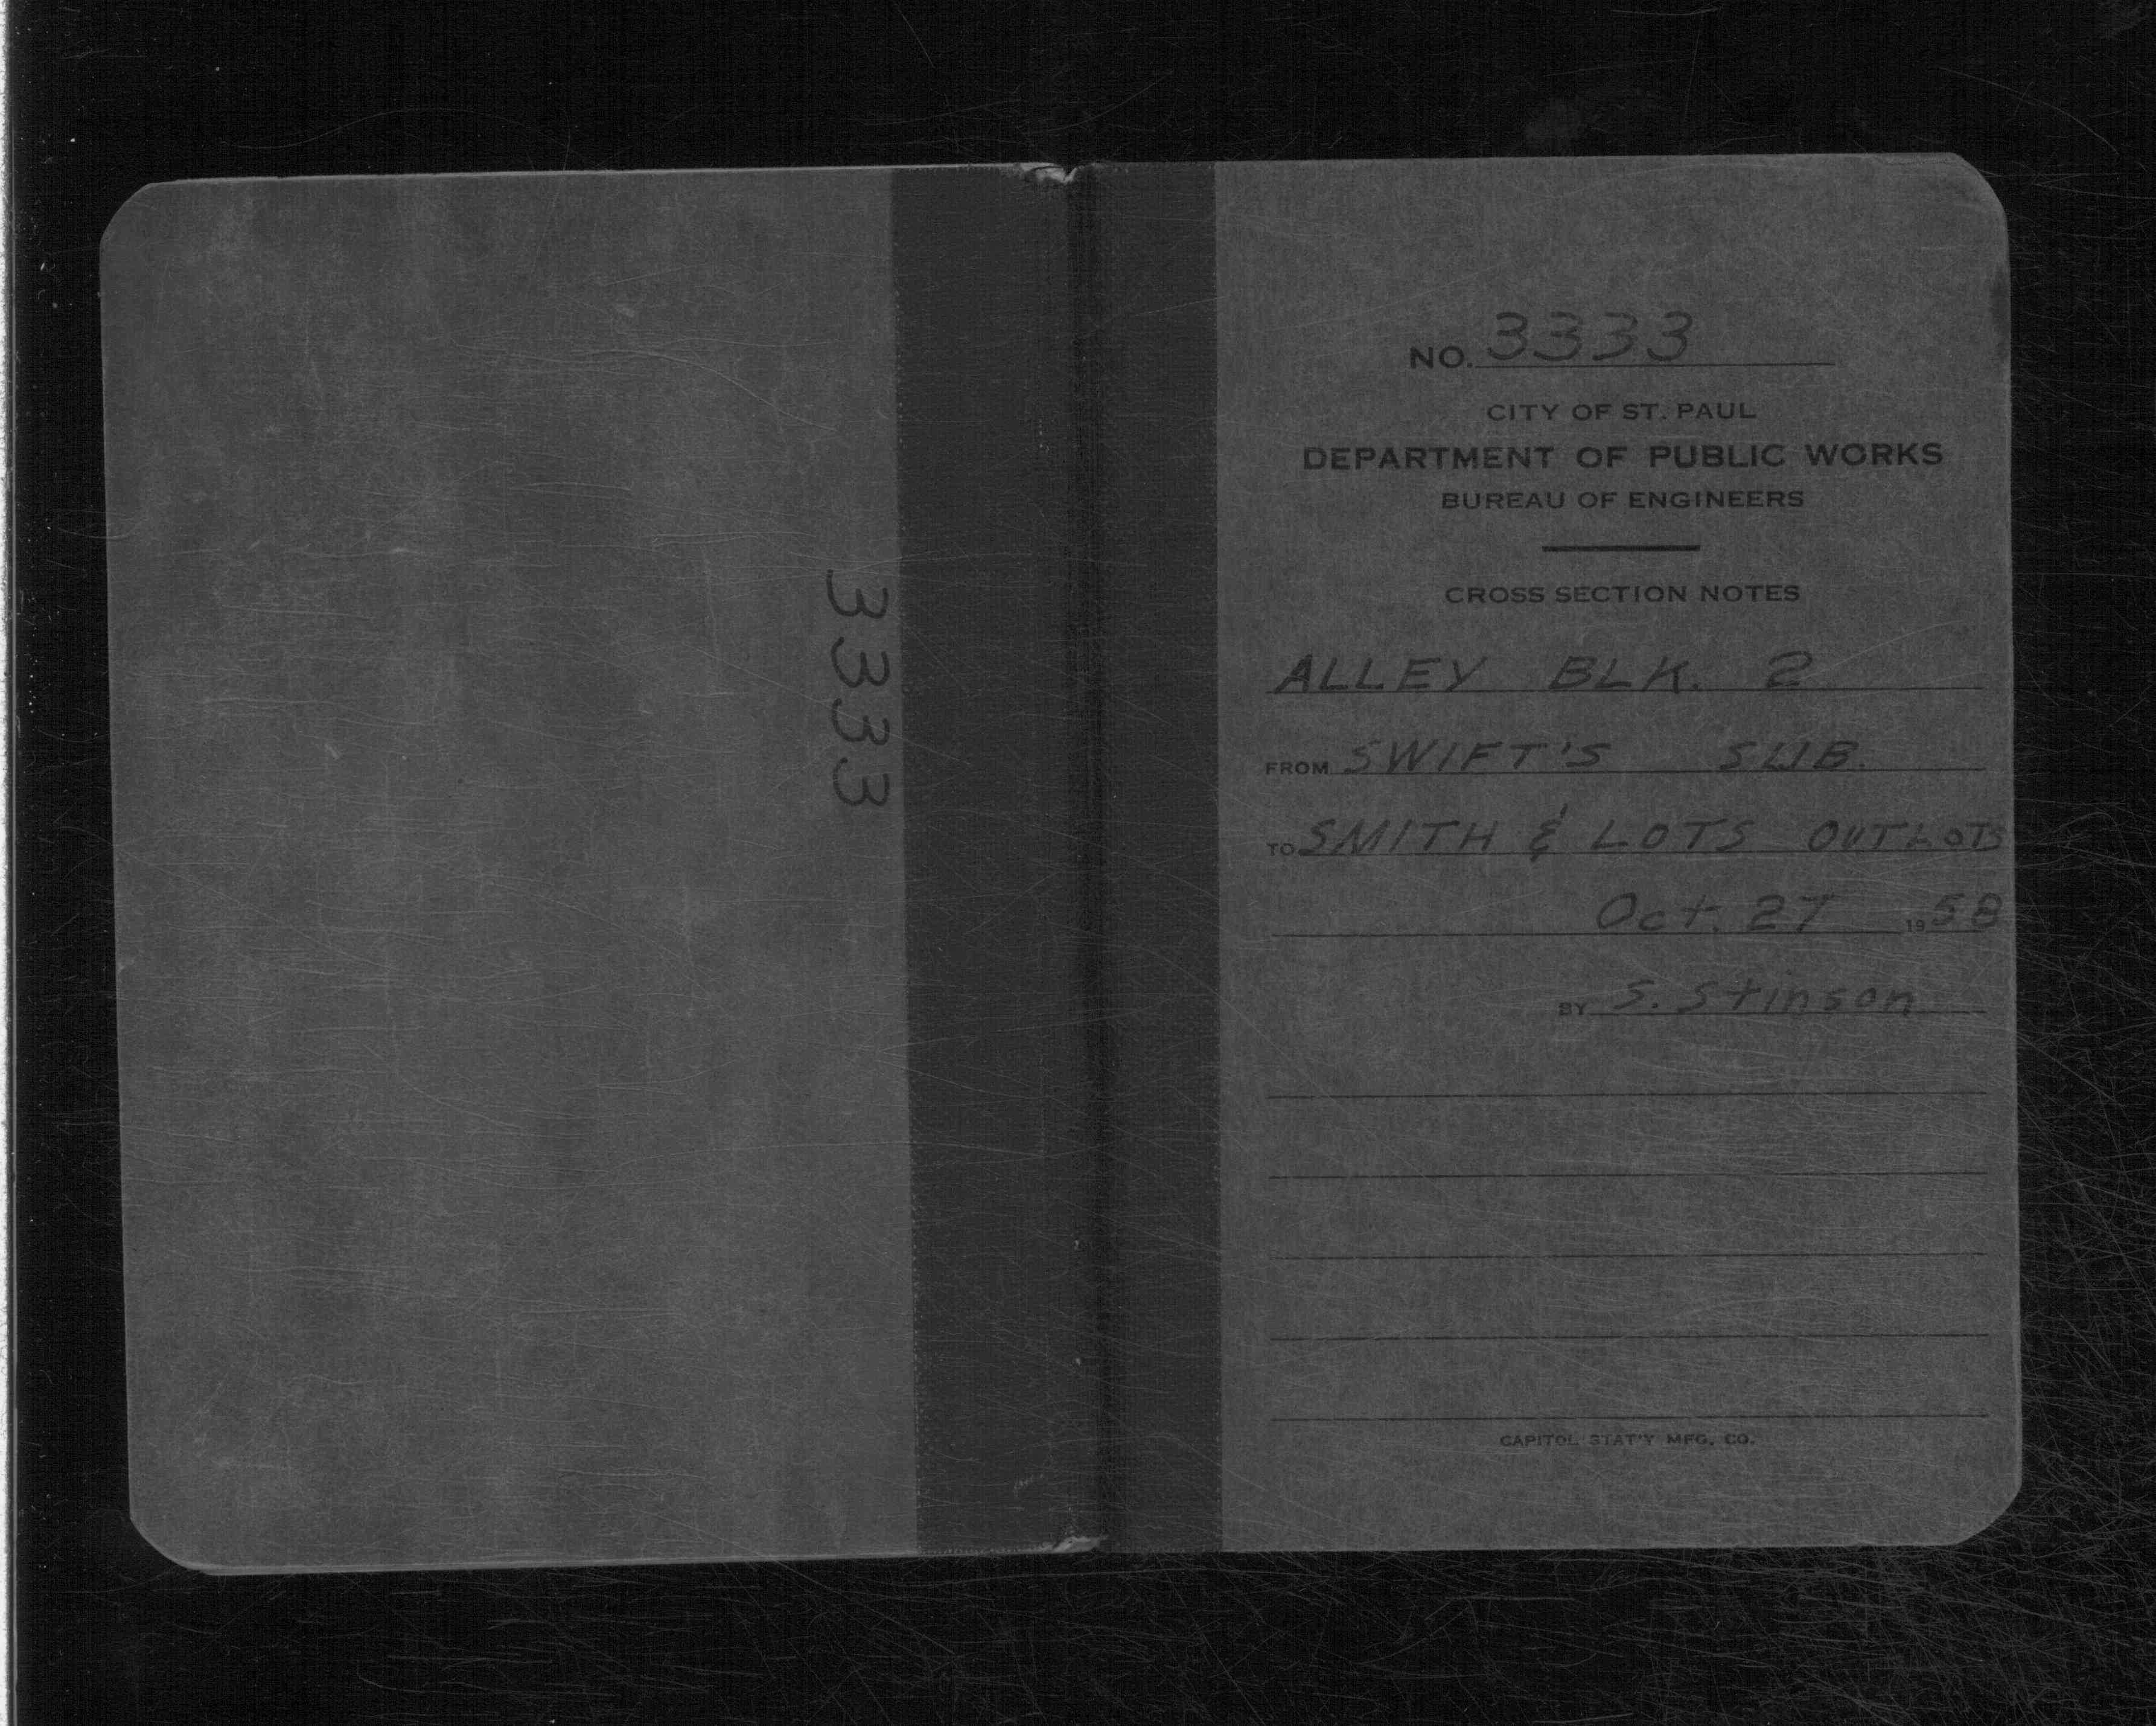 3333
NO. 3333
CITY OF ST. PAUL
DEPARTMENT OF PUBLIC WORKS
BUREAU OF ENGINEERS
CROSS SECTION NOTES
ALLEY BLK. 2
FROM SWIFT'S SUB.
TO SMITH & LOTS OUTLOTS
Oct. 27 1958
BY S. Stinson
CAPITOL STAT'Y MFG. CO.